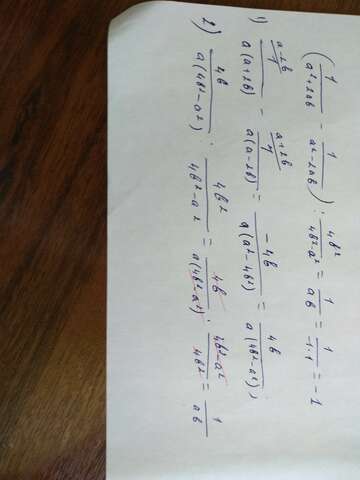 (1/(a²+2ab) - 1/(a²-2ab)) : 4b²/(4b²-a²) = 1/ab = 1/(-1·1) = -1
1) (a-2b) 1/(a(a+2b)) - (a+2b) 1/(a(a-2b)) = -4b/(a(a²-4b²)) = 4b/(a(4b²-a²));
2) 4b/(a(4b²-a²)) : 4b²/(4b²-a²) = 4b/(a(4b²-a²)) · (4b²-a²)/4b² = 1/ab